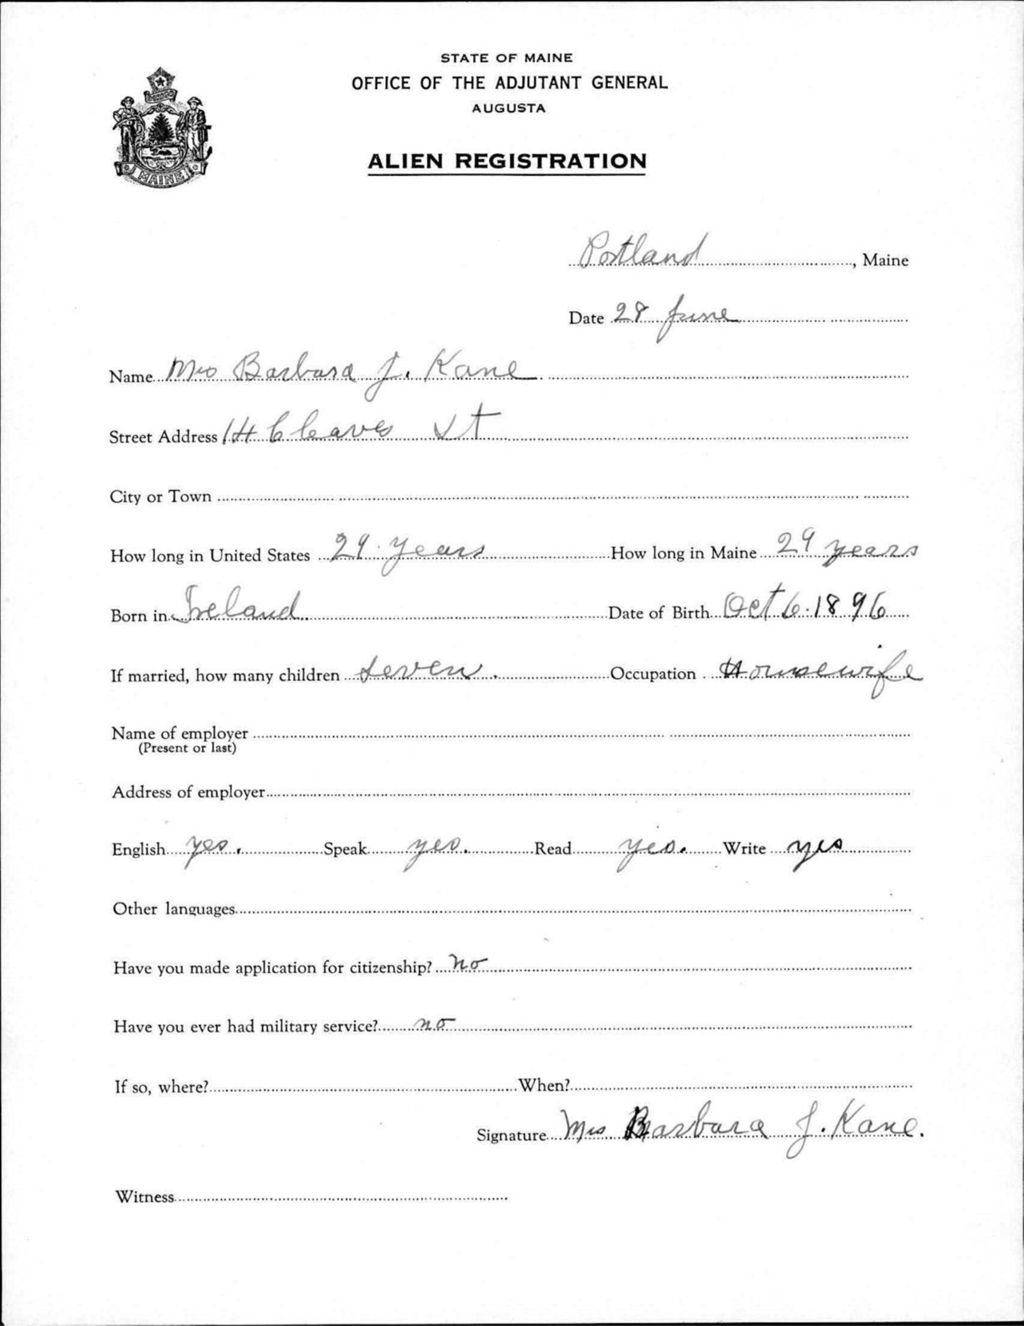 STATE OF MAINE
OFFICE OF THE ADJUTANT GENERAL
AUGUSTA
ALIEN REGISTRATION
MAINE
Portland, Maine
Date 28 June
Name Mrs Barbara J. Kane
Street Address 14 Cleaves St
City or Town
How long in United States 29 years How long in Maine 29 years
Born in Ireland. Date of Birth Oct 6. 1896
If married, how many children seven. Occupation Housewife
Name of employer
(Present or last)
Address of employer
English yes. Speak yes. Read yes. Write yes
Other languages
Have you made application for citizenship? no
Have you ever had military service? no
If so, where? When?
Signature Mrs Barbara J. Kane.
Witness